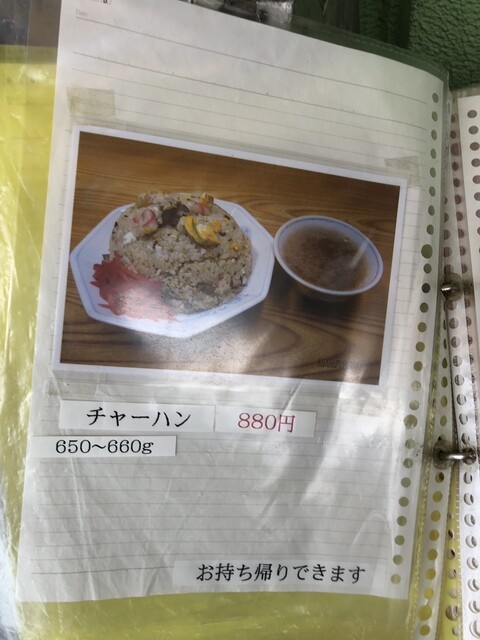 チャーハン 880円
650〜660g
お持ち帰りできます